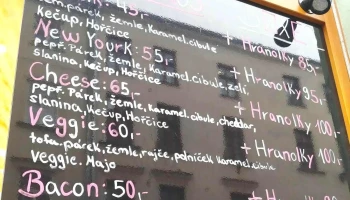 45,-
párek, žemle, Karamel.cibule
Kečup, Hořčice
+ Hranolky 85,-
New Yourk: 55,-
pepř. Párek, žemle, Karamel.cibule, zelí
Slanina, Kečup, Hořčice
+ Hranolky 95,-
Cheese: 65,-
pepř. Párek, žemle, Karamel.cibule, cheddar,
slanina, Kečup, Hořčice
+ Hranolky 100,-
Veggie: 60,-
tofu.párek, žemle, rajče, polníček Karamel.cibule
Veggie. Majo
+ Hranolky 100,-
Bacon: 50,-